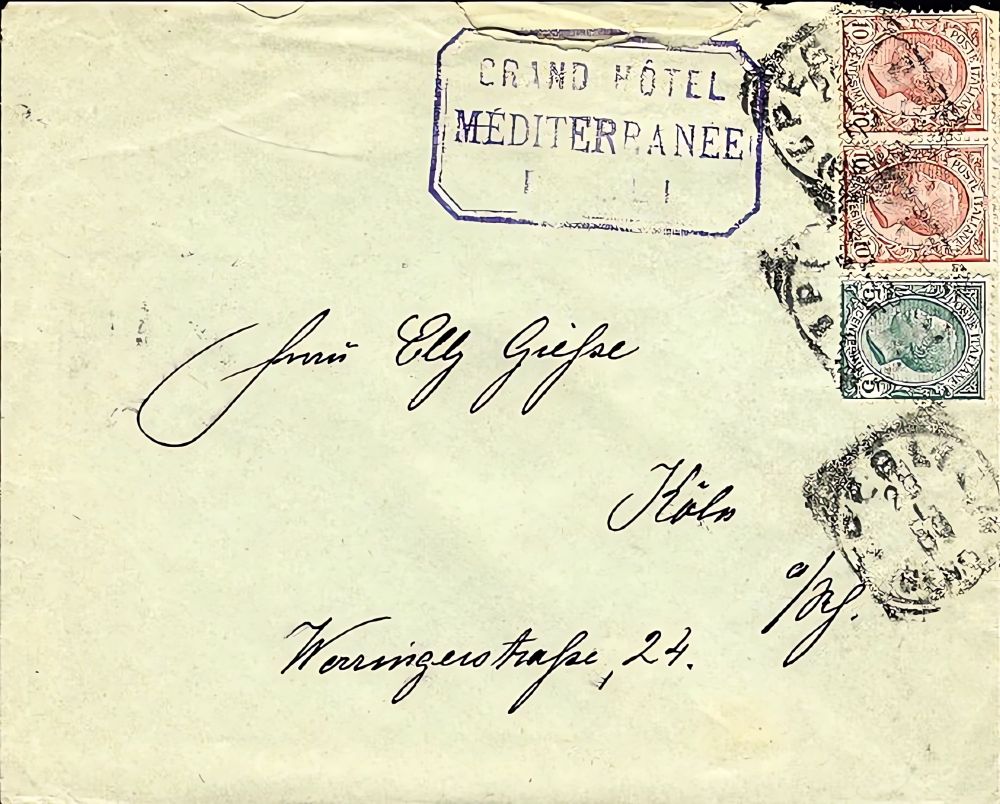 GRAND HÔTEL
MÉDITERRANÉE
10 POSTE ITALIANE
10 POSTE ITALIANE
5 POSTE ITALIANE 5
Frau Elly Gieße
Köln
a/Rh.
Werringerstraße, 24.